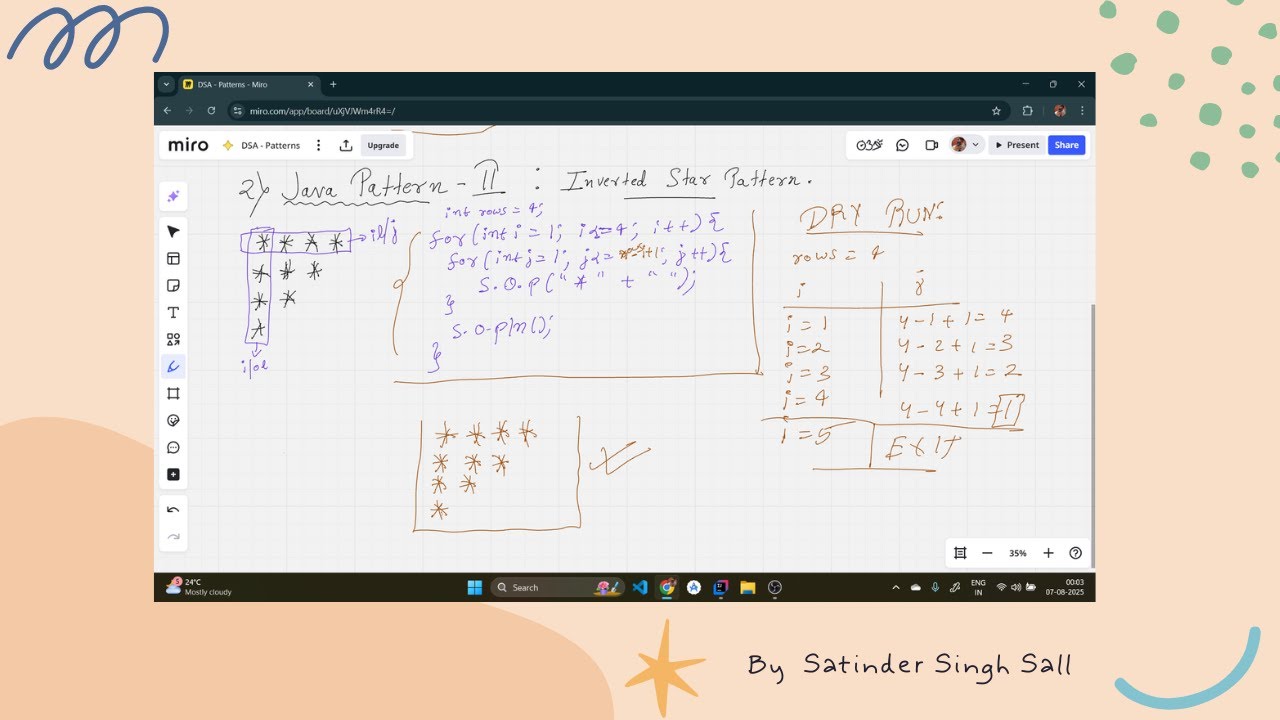 DSA - Patterns - Miro
miro.com/app/board/uXjVJWm4rR4=/
miro
DSA - Patterns
Upgrade
Present
Share
2) Java Pattern - II : Inverted Star Pattern.
int rows = 4;
for(int i = 1; i<=4; i++){
for(int j=1; j<= ; j++){
S.O.p("*" + " ");
}
S.O.pln();
}
* * * *
* * *
* *
*
DRY RUN:
rows = 4
i j
i = 1 4-1+1= 4
i=2 4-2+1=3
i=3 4-3+1=2
i=4 4-4+1=1
i=5 EXIT
* * * *
* * *
* *
*
35%
24°C
Mostly cloudy
Search
ENG
IN
00:03
07-08-2025
By Satinder Singh Sall